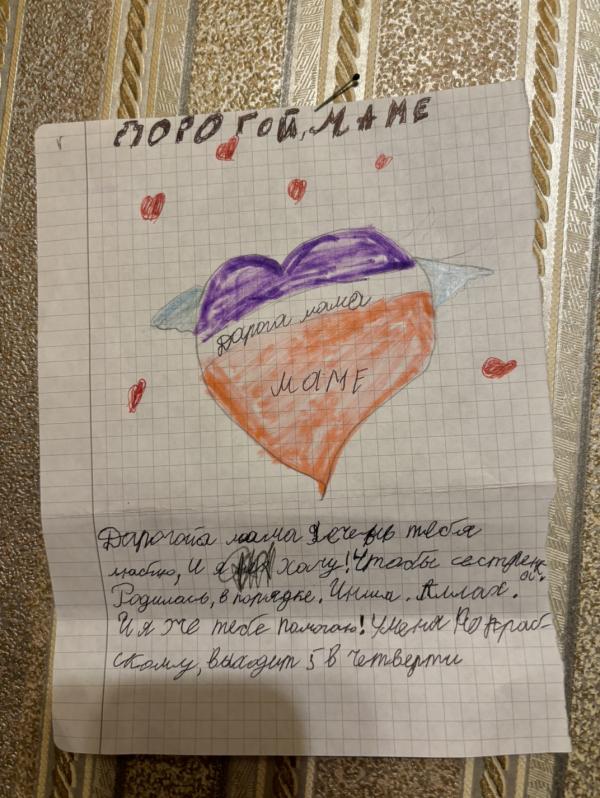 ДОРОГОЙ, МАМЕ
Дарога мама
МАМЕ
Дарогойа мама Я очень тебя
люблю, И я хачу! Чтобы сестренк
Родилась, в порядке. Иншл. Аллах.
И я же тебе помогаю! Уменя По Араб-
скому, выходит 5 в четверти